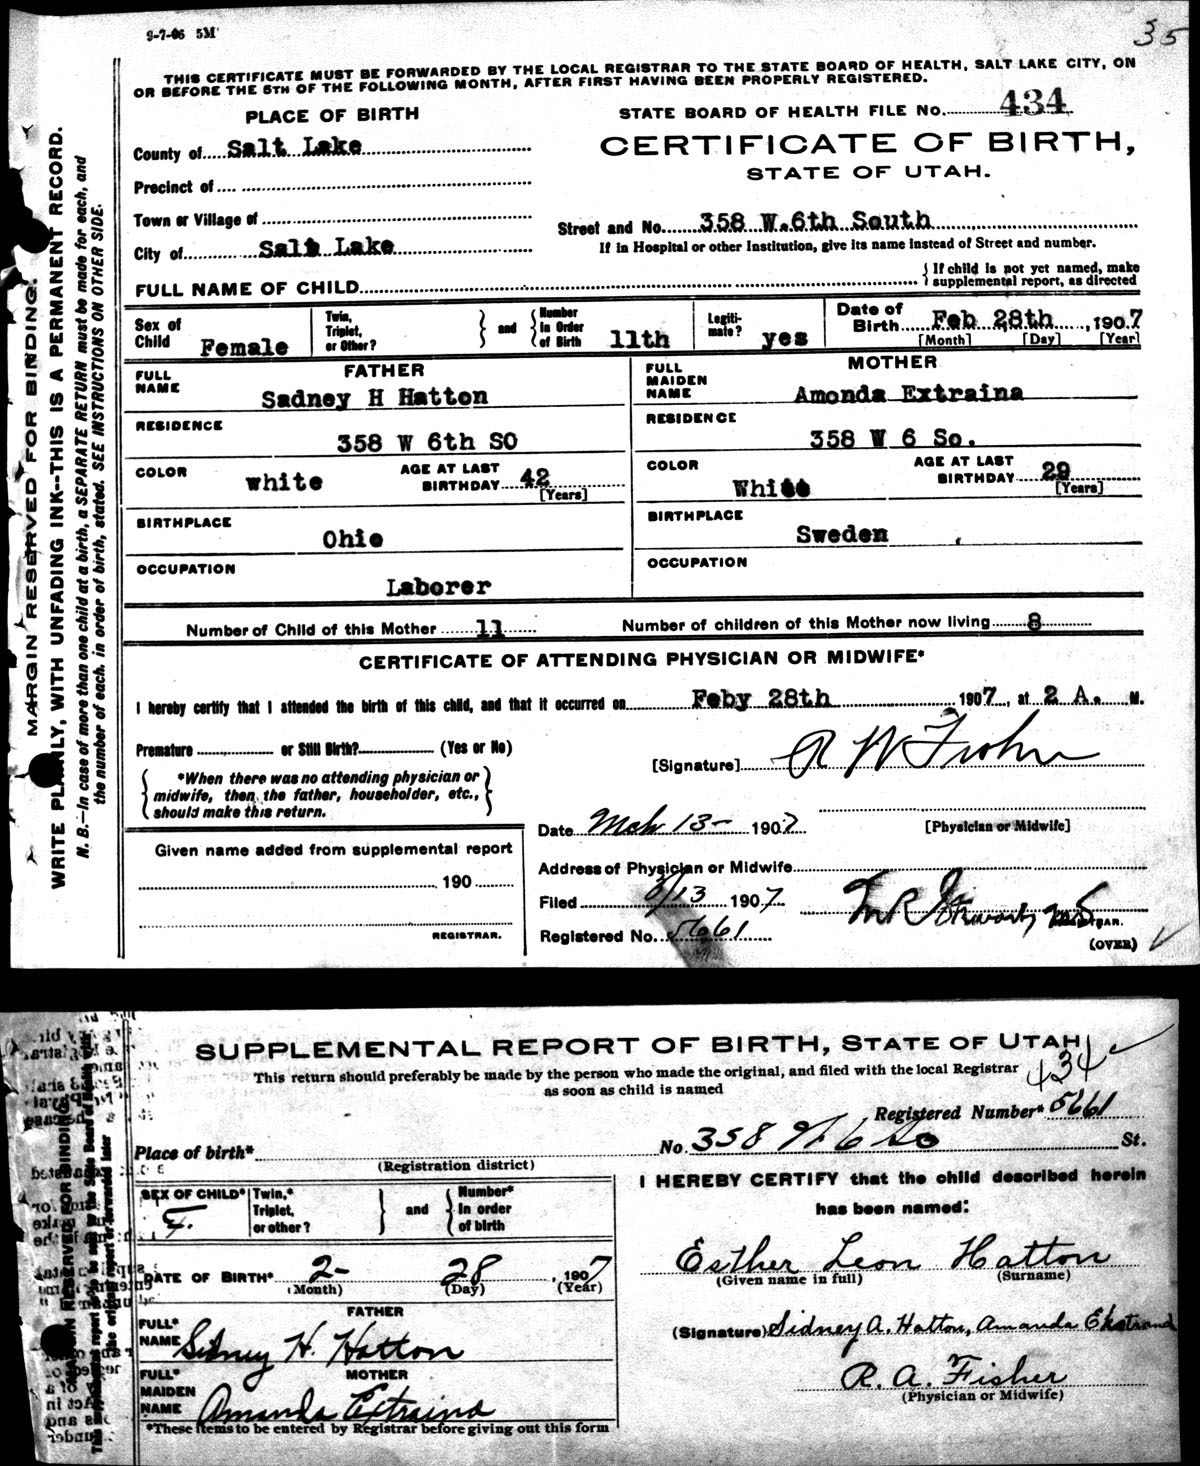 9-7-06 5M
35
THIS CERTIFICATE MUST BE FORWARDED BY THE LOCAL REGISTRAR TO THE STATE BOARD OF HEALTH, SALT LAKE CITY, ON
OR BEFORE THE 5TH OF THE FOLLOWING MONTH, AFTER FIRST HAVING BEEN PROPERLY REGISTERED.
MARGIN RESERVED FOR BINDING.
WRITE PLAINLY, WITH UNFADING INK--THIS IS A PERMANENT RECORD.
N. B.—In case of more than one child at a birth, a SEPARATE RETURN must be made for each, and
the number of each, in order of birth, stated. SEE INSTRUCTIONS ON OTHER SIDE.
PLACE OF BIRTH
STATE BOARD OF HEALTH FILE No. 434
County of Salt Lake
CERTIFICATE OF BIRTH,
STATE OF UTAH.
Precinct of
Town or Village of
Street and No. 358 W.6th South
City of Salt Lake
If in Hospital or other Institution, give its name instead of Street and number.
FULL NAME OF CHILD
If child is not yet named, make
supplemental report, as directed
Sex of Child Female
Twin, Triplet, or Other?
and
Number in Order of Birth 11th
Legiti-mate? yes
Date of Birth Feb 28th, 1907
[Month] [Day] [Year]
FATHER
FULL NAME Sadney H Hatton
RESIDENCE
358 W 6th SO
COLOR white
AGE AT LAST BIRTHDAY 42
[Years]
BIRTHPLACE
Ohio
OCCUPATION
Laborer
MOTHER
FULL MAIDEN NAME Amonda Extraina
RESIDENCE
358 W 6 So.
COLOR White
AGE AT LAST BIRTHDAY 29
[Years]
BIRTHPLACE
Sweden
OCCUPATION
Number of Child of this Mother 11 Number of children of this Mother now living 8
CERTIFICATE OF ATTENDING PHYSICIAN OR MIDWIFE*
I hereby certify that I attended the birth of this child, and that it occurred on Feby 28th 1907, at 2 A. M.
Premature or Still Birth? (Yes or No)
[Signature] R W
*When there was no attending physician or
midwife, then the father, householder, etc.,
should make this return.
Date Mch 13- 1907
[Physician or Midwife]
Given name added from supplemental report
190
REGISTRAR.
Address of Physician or Midwife
Filed 3/13 1907
REGISTRAR.
Registered No. 5661
(OVER)
SUPPLEMENTAL REPORT OF BIRTH, STATE OF UTAH
434
This return should preferably be made by the person who made the original, and filed with the local Registrar
as soon as child is named
Registered Number* 5661
Place of birth*
No. 358 W. 6 So St.
(Registration district)
SEX OF CHILD* F.
Twin,* Triplet, or other?
and
Number* In order of birth
DATE OF BIRTH* 2- 28, 1907
(Month) (Day) (Year)
FATHER
FULL* NAME Sidney H. Hatton
MOTHER
FULL* MAIDEN NAME Amanda Extraina
*These items to be entered by Registrar before giving out this form
I HEREBY CERTIFY that the child described herein
has been named:
Esther Leon Hatton
(Given name in full) (Surname)
(Signature) Sidney A. Hatton, Amanda Ekstrand
R. A. Fisher
(Physician or Midwife)